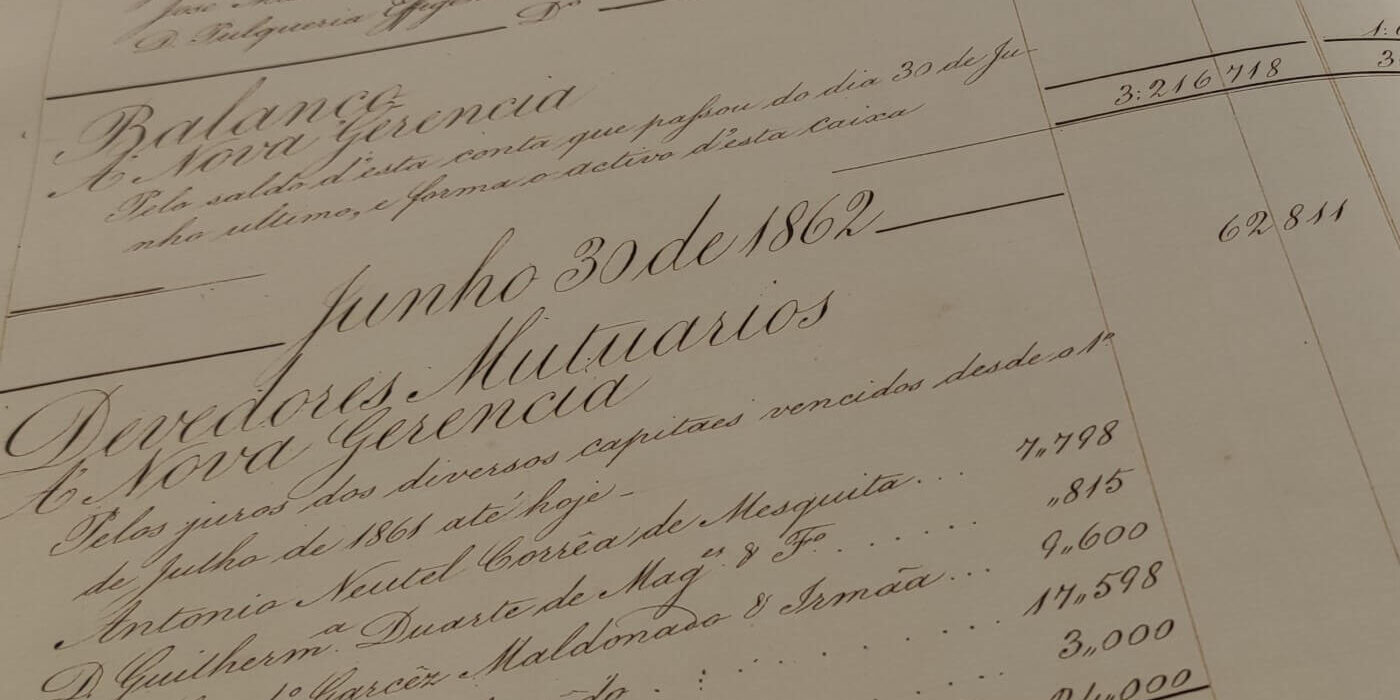 D. Pulqueria Effigen
Dº
Balanço
A' Nova Gerencia
Pelo saldo d'esta conta que passou do dia 30 de Ju-
nho ultimo, e forma o activo d'esta caixa
3:216 718
62 811
Junho 30 de 1862
Devedores Mutuarios
A' Nova Gerencia
Pelos juros dos diversos capitães vencidos desde o 1º
de Julho de 1861 até hoje -
Antonio Neutel Corrêa de Mesquita . . . 7,,798
D. Guilherm.ª Duarte de Mag.es & Fº . . . . . ,,815
Garcêz Maldonado & Irmãa . . . 9,,600
17,,598
3,,000